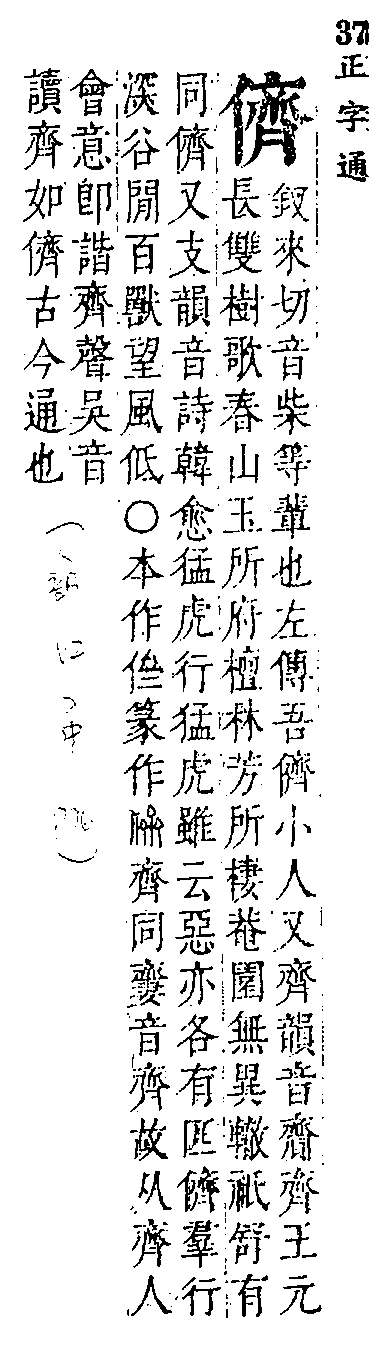 37 正字通
儕
釵來切音柴等輩也左傳吾儕小人又齊韻音齊王元
長雙樹歌春山玉所府檀林芳所棲菴園無異轍祇舒有
同儕又支韻音詩韓愈猛虎行猛虎雖云惡亦各有匹儕羣行
深谷閒百獸望風低○本作篆作齊同音齊故从齊人
會意即諧齊聲吳音
讀齊如儕古今通也